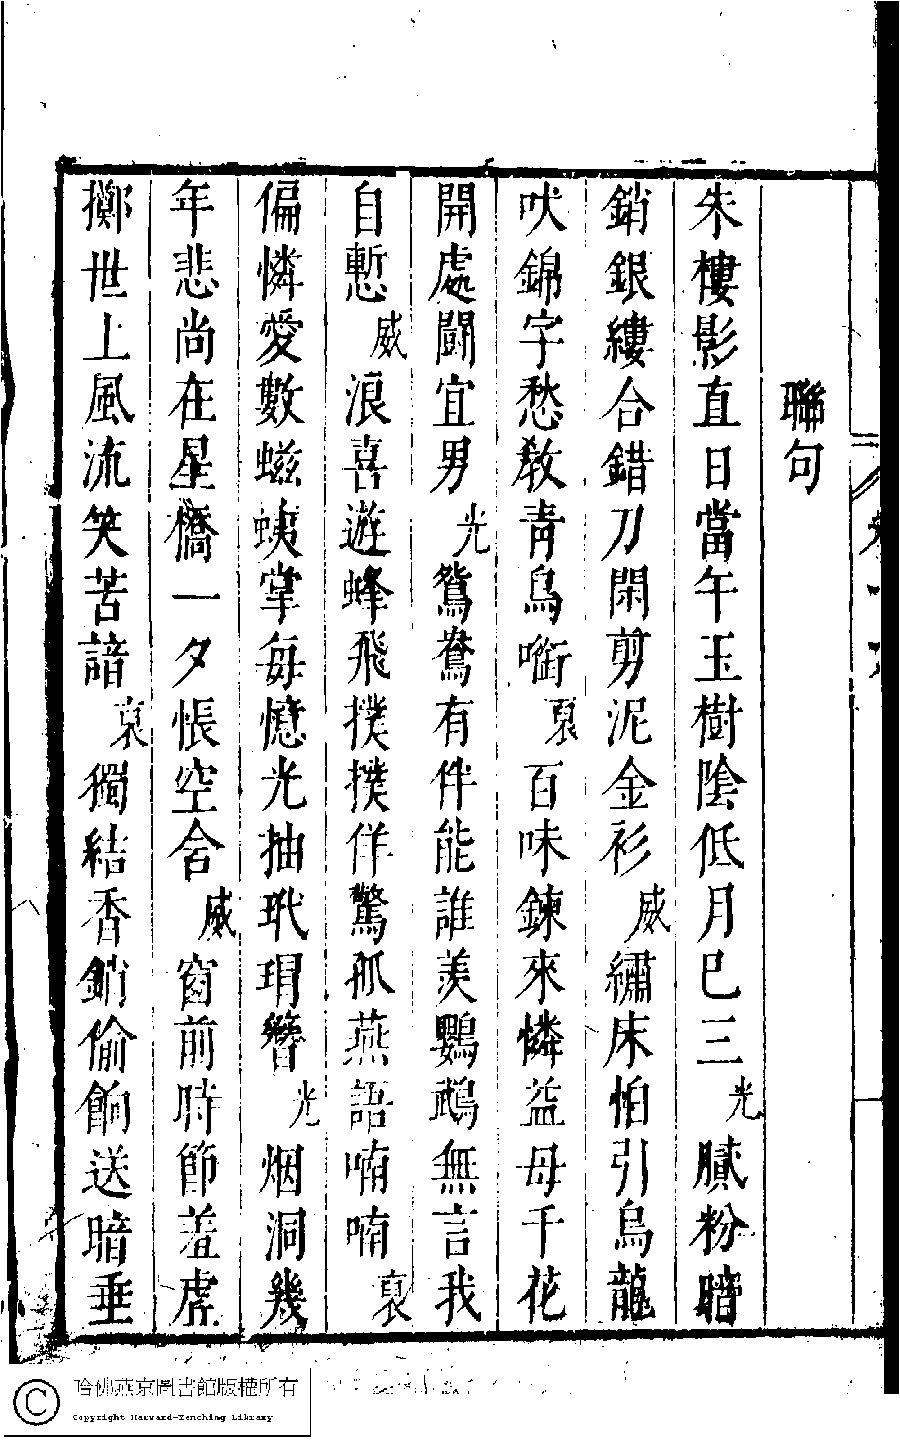 聯句
朱樓影直日當午玉樹陰低月已三光膩粉暗
銷銀縷合錯刀閑剪泥金衫威繡床怕引烏龍
吠錦字愁教青鳥銜裒百味鍊來憐益母千花
開處鬪宜男光鴛鴦有伴能誰羨鸚鵡無言我
自慙威浪喜遊蜂飛撲撲佯驚孤燕語喃喃裒
偏憐愛數蟣蛦掌每憶光抽玳瑁簪光烟洞幾
年悲尚在星橋一夕悵空含威窗前時節羞虛
擲世上風流笑苦諳裒獨結香銷偷餉送暗垂
哈佛燕京圖書館版權所有
Copyright Harvard-Yenching Library